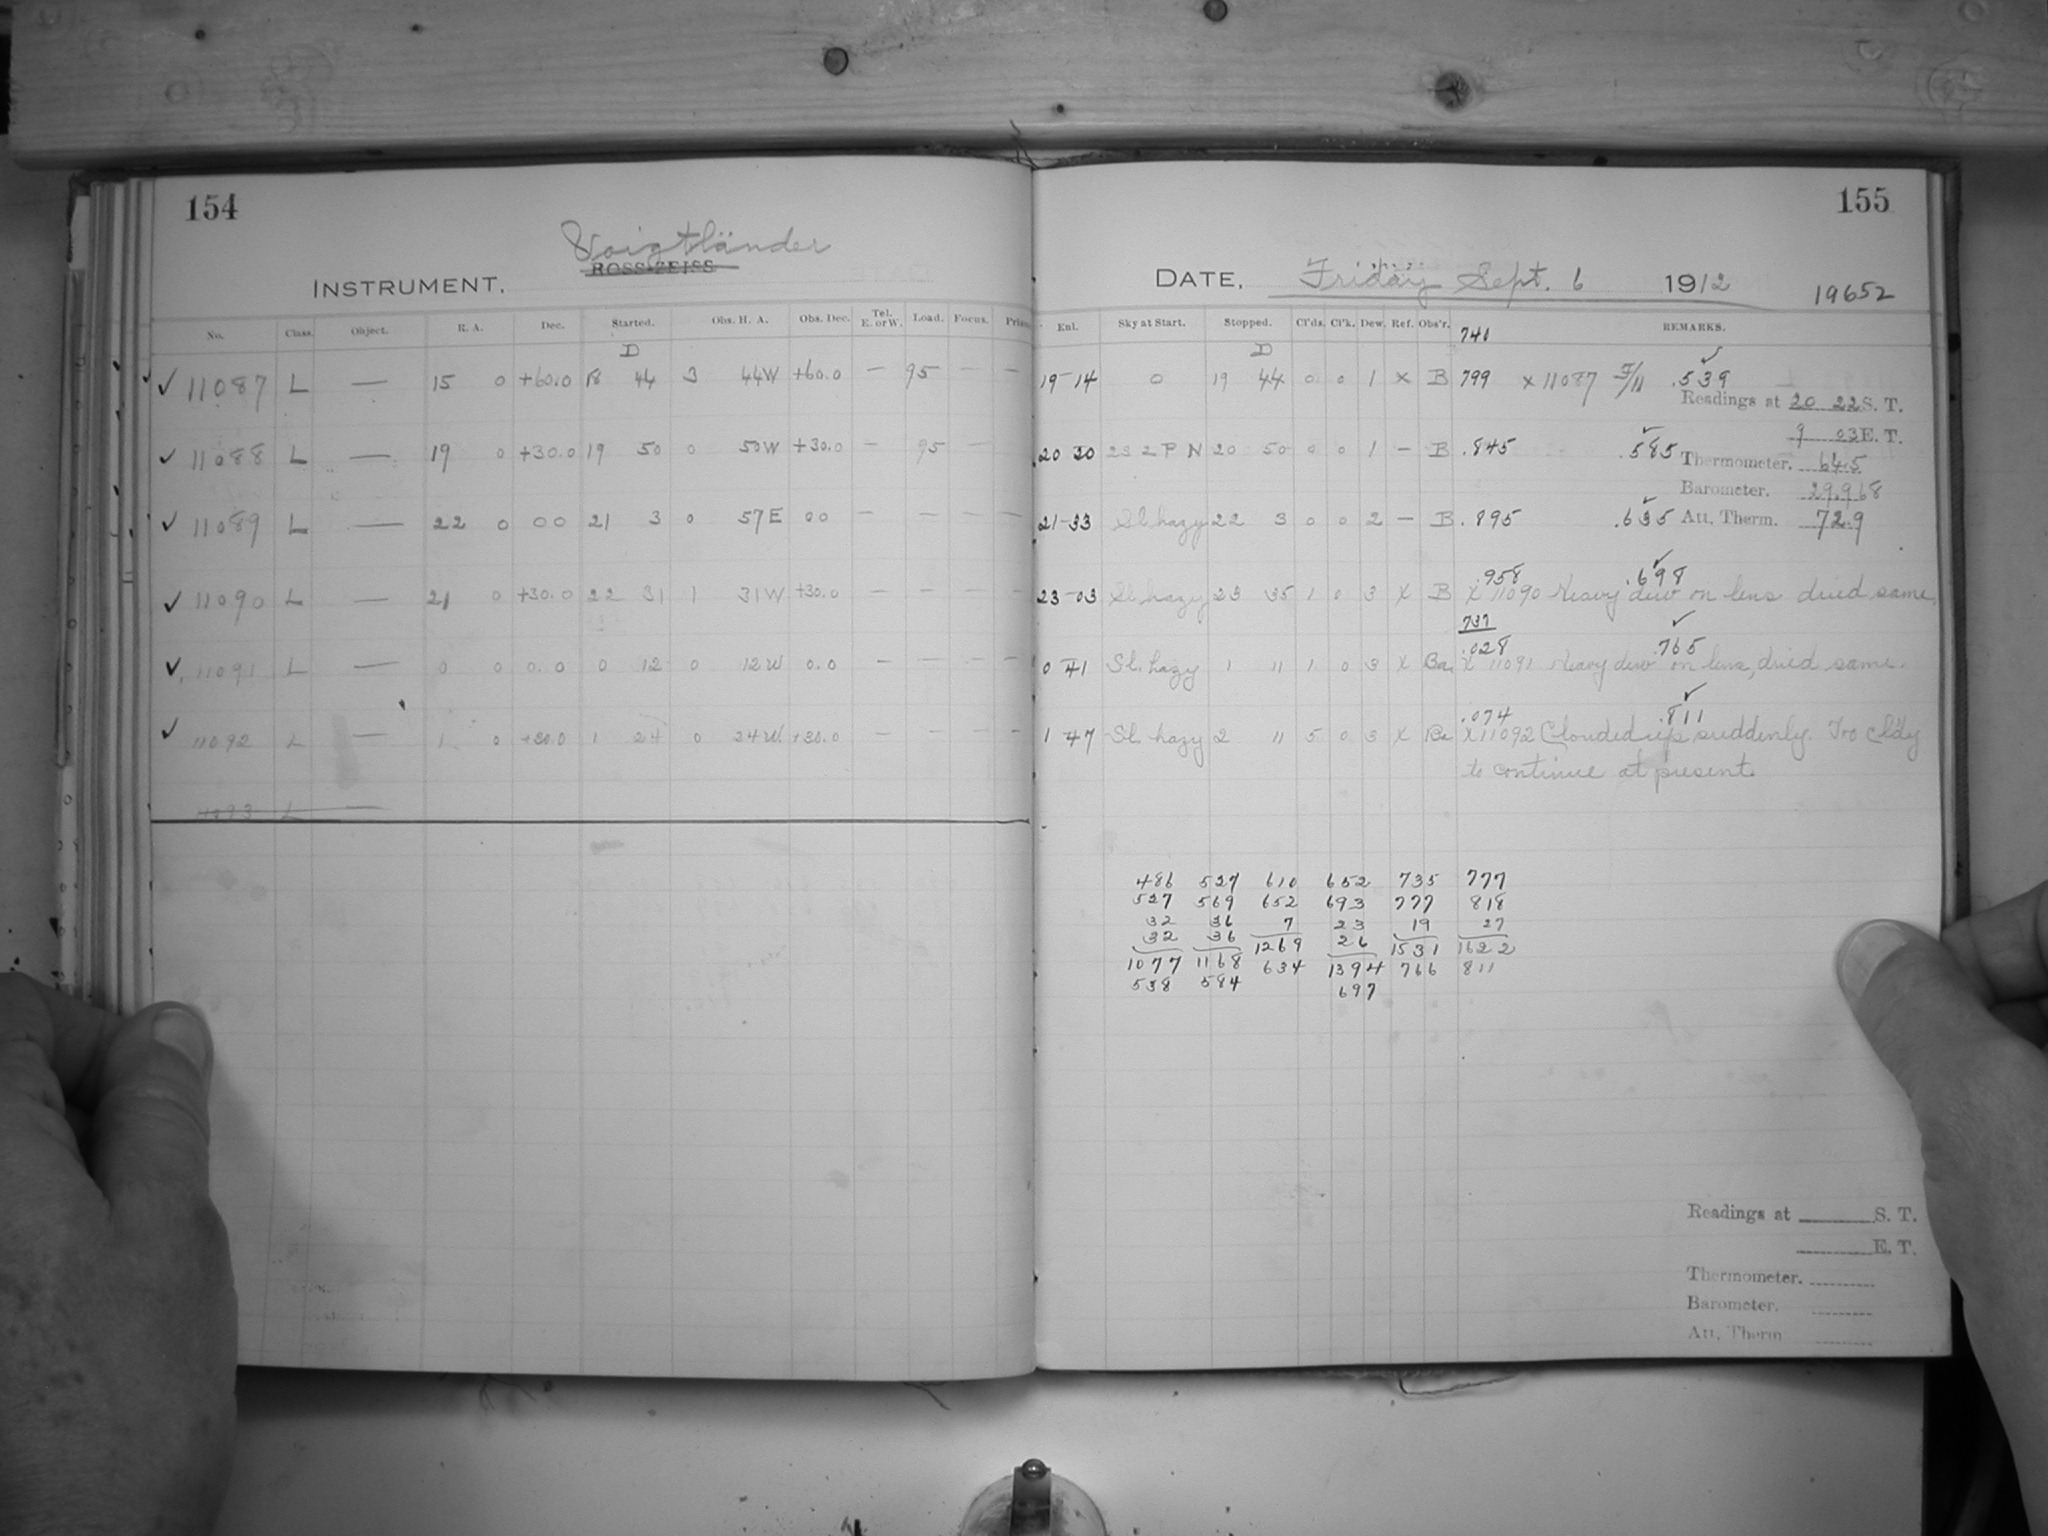 154
Voigtländer
ROSS-ZEISS
INSTRUMENT.
No. Class. Object. R. A. Dec. Started. Obs. H. A. Obs. Dec. Tel. E. or W. Load. Focus. Prism
D
✓ 11087 L — 15 0 +60.0 18 44 3 44W +60.0 — 95 — —
✓ 11088 L — 19 0 +30.0 19 50 0 50W +30.0 — 95 —
✓ 11089 L — 22 0 00 21 3 0 57E 00 — — — —
✓ 11090 L — 21 0 +30.0 22 31 1 31W +30.0 — — — —
✓ 11091 L — 0 0 0.0 0 12 0 12W 0.0 — — — —
✓ 11092 L — 1 0 +30.0 1 24 0 24W +30.0 — — — —
11093 L —
155
DATE, Friday Sept. 6 1912 19652
Enl. Sky at Start. Stopped. Cl'ds. Cl'k. Dew. Ref. Obs'r. REMARKS.
740
D
19-14 0 19 44 0 0 1 x B 799 x 11087 F/11 .539 ✓
Readings at 20 22 S. T.
9 03 E. T.
20 30 23 2 P N 20 50 0 0 1 — B .845 .585 ✓
Thermometer. 64.5
Barometer. 29.968
21-33 Sl. hazy 22 3 0 0 2 — B .895 .635 ✓
Att. Therm. 72.9
.958 .698 ✓
23-03 Sl. hazy 23 35 1 0 3 x B x 11090 Heavy dew on lens dried same.
737
.028 .765 ✓
0 41 Sl. hazy 1 11 1 0 3 x Ba x 11091 Heavy dew on lens, dried same.
.074 .811 ✓
1 47 Sl. hazy 2 11 5 0 3 x Ba x 11092 Clouded up suddenly. Too cl'dy
to continue at present.
486 527 610 652 735 777
527 569 652 693 777 818
32 36 7 23 19 27
32 36 1269 26 1531 1622
1077 1168 634 1394 766 811
538 584 697
Readings at S. T.
E. T.
Thermometer.
Barometer.
Att. Therm